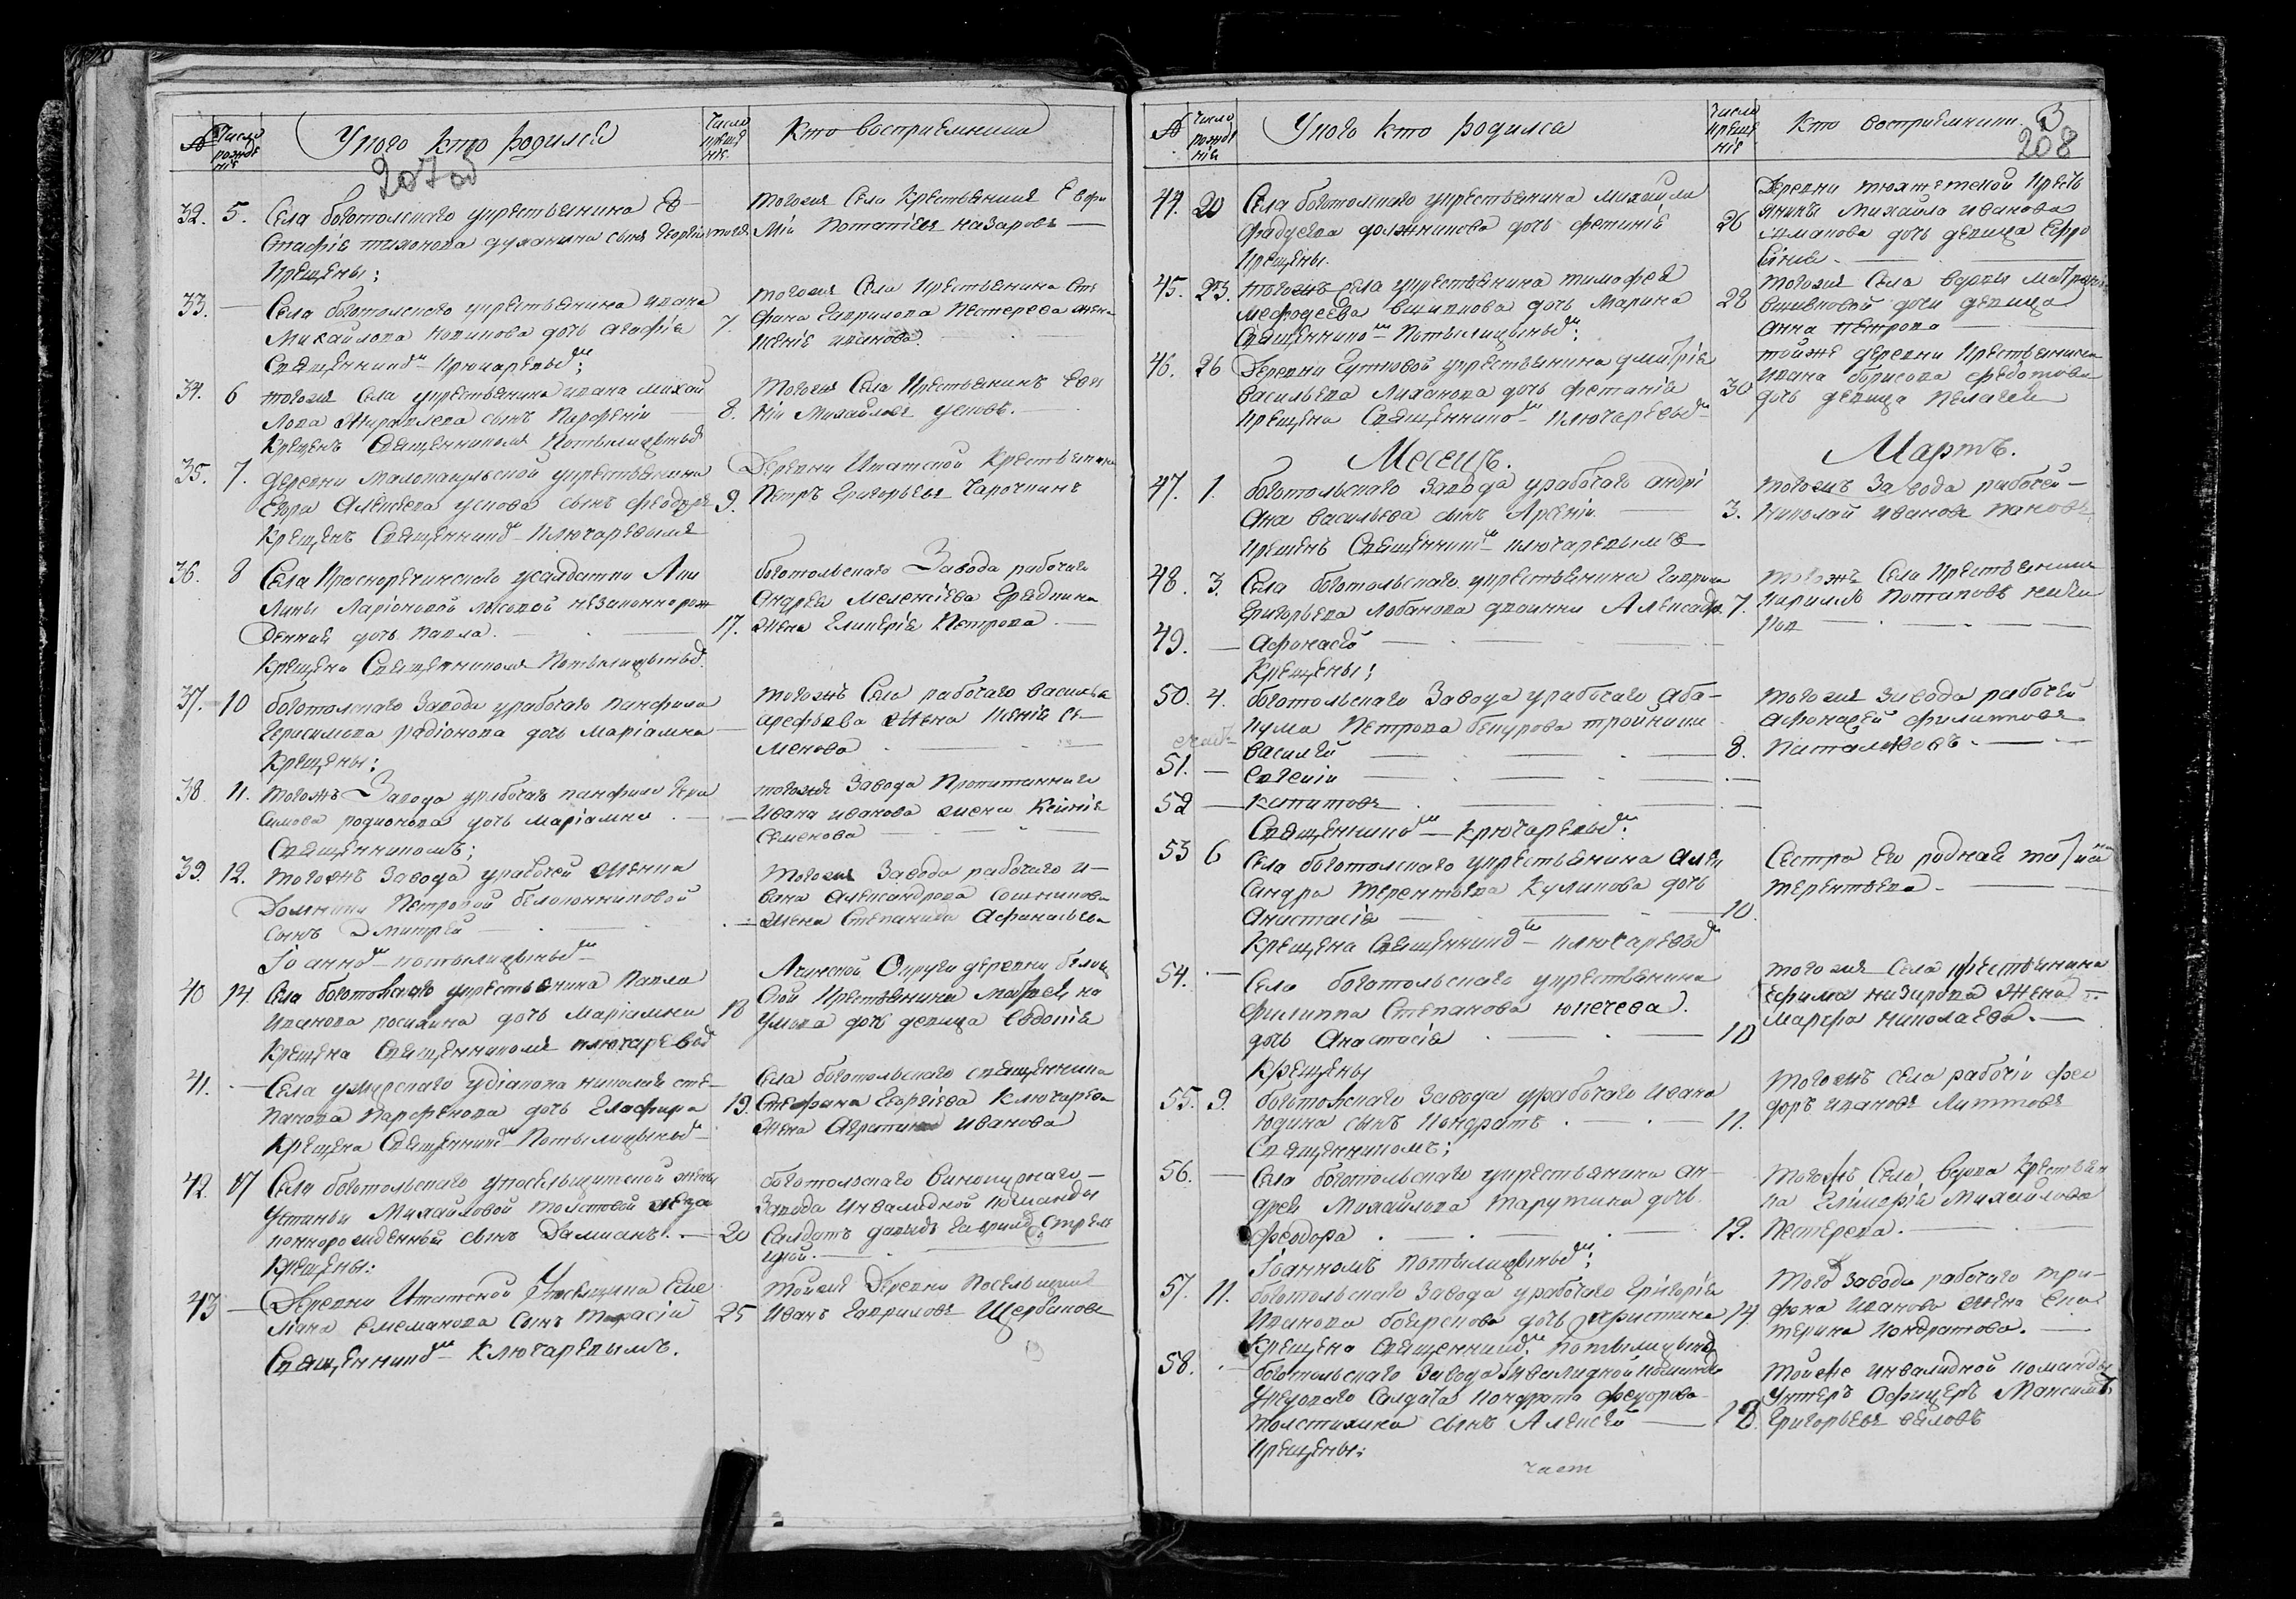 №
Число рожденія
У кого кто родился
Число крещенія
Кто восприемники
207 об
32. 5. Села боготольскаго укрестьянина Ев-
стафія тихонова сынъ Георгій
Крещены:
тогожъ Села Крестьянинъ Евфи
мій Потапіевъ назаровъ
33. — Села боготольскаго укрестьянина ивана
Михайлова новикова дочь агафія
Священникомъ Ключаревымъ:
7.
тогожъ Села Крестьянина Сте
фана Гаврилова Пестерева жена
ксенія иванова.
34. 6 тогожъ Села укрестьянина ивана михай
лова Журавлева сынъ Парфеній
Крещенъ Священникомъ Потылицынымъ
8.
Тогожъ Села Крестьянинъ Евге
ній Михайловъ усковъ.
35. 7. деревни Малокосульской укрестьянина
Егора Алексеева ускова сынъ феодоръ
Крещенъ Священникомъ Ключаревымъ
9.
Деревни Итатской Крестьянинъ
Петръ Григорьевъ Чарочкинъ
36. 8 Села Краснореченскаго усолдатки Аку
лины Ларіоновой лисовой незаконнорож
денная дочь павла.
Крещена Священникомъ Потылицынымъ.
17.
боготольскаго Завода рабочаго
Андрея Мелентіева Гредкина
жена Гликерія Петрова.
37. 10 боготольскаго Завода урабочаго панфила
Герасимова радіонова дочь маріамна
Крещены:
тогожъ Села рабочаго василья
арефьева жена Ксенія се-
менова
38. 11. тогожъ Завода урабочаго панфила Гера
симова родионова дочь маріамна
Священникомъ;
тогожъ Завода Пропитаннаго
ивана иванова жена Ксенія
Семенова
39. 12. тогожъ Завода урабочей женки
Домники Петровой белоконниковой
сынъ Дмитрей
Іоанномъ потылицынымъ
Тогожъ Завода рабочаго и-
вана александрова сошникова
жена Степанида Афанасьева
40 14 Села боготольскаго укрестьянина Павла
Иванова росихина дочь Маріамна
Крещена Священникомъ ключаревымъ
18
Ачинской Округи деревни
ской крестьянина Матвея на
умова дочь девица Евдокія
41. — Села ужурскаго удіакона николая сте-
панова Парфенова дочь Глафира
Крещена Священникомъ Потылицынымъ
19.
Села боготольскаго священника
Стефана Георгіева Ключарева
жена Иванова
42. 17 Села боготольскаго упоселыцитской жены
Устиньи Михайловой толстовой неза
коннорожденный сынъ Дамианъ.
Крещены:
20
боготольскаго винокуреннаго
Завода инвалидной команды
Солдатъ давыдъ Гавриловъ Стрель
цкой.
43 — Деревни Итатской Упоселыцика Еме
льяна Емельянова сынъ Тарасій
Священникомъ Ключаревымъ.
25
Тойже Деревни Поселыцикъ
иванъ Гавриловъ Щербаковъ
№
Число рожденія
У кого кто родился
Число крещенія
Кто восприемники.
3
208
44. 20 Села боготольскаго укрестьянина михайла
фадеева должникова дочь фетинія
Крещены.
26
Деревни тюхтетской кресть
янина Михайла иванова
дочь девица Ефро
синья.
45. 23. тогожъ села укрестьянина тимофея
мефодеева вшивкова дочь Марина
Священникомъ Потылицынымъ:
28
Тогожъ Села вдовы матроны
вшивковой дочь девица
анна петрова
46. 26 Деревни Гутковой укрестьянина дмитрія
васильева Лиханова дочь фетинія
крещена Священникомъ Ключаревымъ
30
тойже деревни крестьянина
ивана борисова федотова
дочь девица пелагея
Месецъ. Мартъ.
47. 1. боготольскаго завода урабочаго андрі
ана васильева сынъ Арсеній
крещенъ Священникомъ ключаревымъ
3.
тогожъ Завода рабочей
николай ивановъ пановъ
48. 3. Села боготольскаго укрестьянина Гаврила
Григорьева Лобанова двоинки Александръ
7.
тогожъ Села Крестьянинъ
кирилло потаповъ
49. — Афонасей
Крещены:
50. 4. боготольскаго Завода урабочаго аба-
кума петрова бекурова тройники
василей
8.
тогожъ завода рабочей
афонасей филиповъ
51. — Евгеній
52 — Капитонъ
Священникомъ Ключаревымъ:
53 6 Села боготольскаго укрестьянина алек
сандра терентьева Куликова дочь
анастасія
Крещена Священникомъ ключаревымъ
10.
Сестра его родная татіана
терентьева
54. — Села боготольскаго укрестьянина
филиппа Степанова юкечева.
дочь Анастасія
Крещены
10
тогожъ Села крестьянина
Ефима назарова жена
марфа николаева.
55. 9. боготольскаго Завода урабочаго ивана
юдина сынъ Кондратъ
Священникомъ;
11.
тогожъ села рабочій фео
доръ ивановъ
56. — Села боготольскаго укрестьянина ан-
дрея Михайлова Тарутина дочь
феодора
Іоанномъ потылицынымъ:
12.
тогожъ Села вдова крестьян
ка Гликерія Михайлова
Пестерева.
57. 11. боготольскаго Завода урабочаго Григорія
иванова боярскова дочь христина
Крещена Священникомъ потылицынымъ
14
того Завода рабочаго три-
фона иванова жена Ека
терина Кондратова.
58. — боготольскаго Завода инвалидной команды
Солдата Кондрата федорова
толстихина сынъ Алексей
Крещены:
18.
тойже инвалидной команды
Унтеръ Офицеръ Максимъ
Григорьевъ беловъ